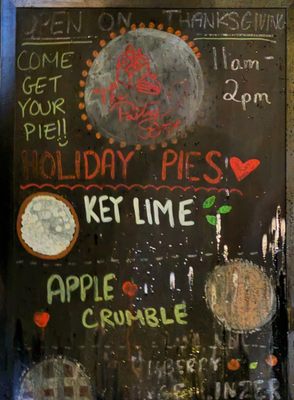 OPEN ON THANKSGIVING
COME
GET
YOUR
PIE!!
11am-
2pm
HOLIDAY PIES
KEY LIME
APPLE
CRUMBLE
LINZER